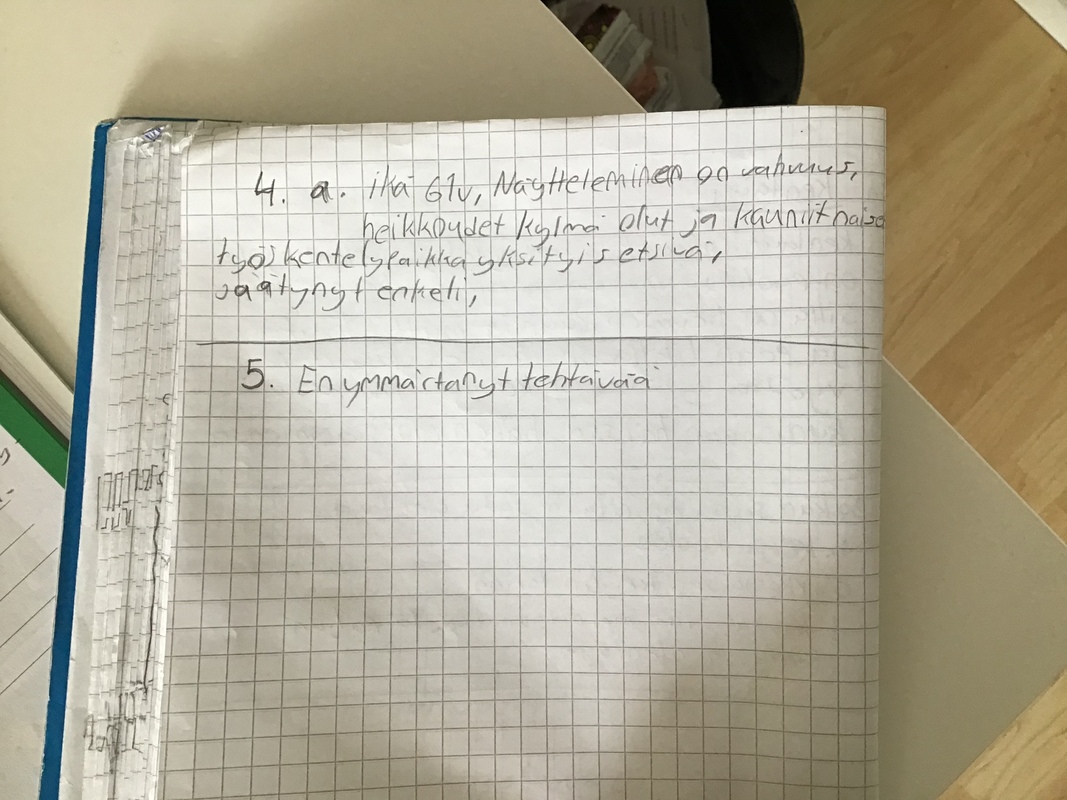 4. a. ikä 61v, Näytteleminen on vahvuus,
heikkoudet kylmä olut ja kauniit naise
työskentelypaikka yksityisetsivä,
Jäätynyt enkeli,
5. En ymmärtänyt tehtävää